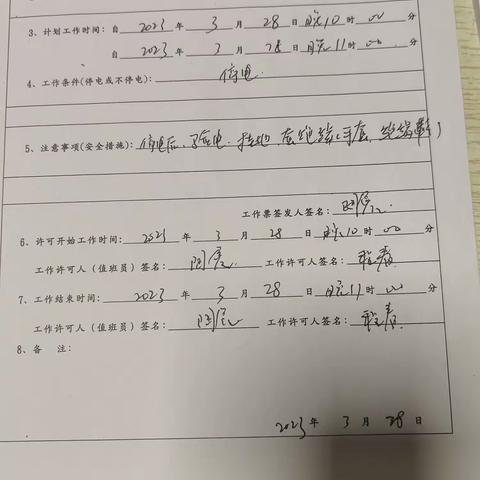 3、计划工作时间：自 2023 年 3 月 28 日 晚10 时 00 分
至 2023 年 3 月 28 日 晚11 时 00 分
4、工作条件(停电或不停电)： 停电.
5、注意事项(安全措施)： 停电后、验电、挂地、戴绝缘手套、绝缘靴
工作票签发人签名：
6、许可开始工作时间： 2023 年 3 月 28 日 晚10 时 00 分
工作许可人（值班员）签名： 工作许可人签名： 程春
7、工作结束时间： 2023 年 3 月 28 日 晚11 时 00 分
工作许可人（值班员）签名： 工作许可人签名： 程春
8、备 注：
2023 年 3 月 28 日